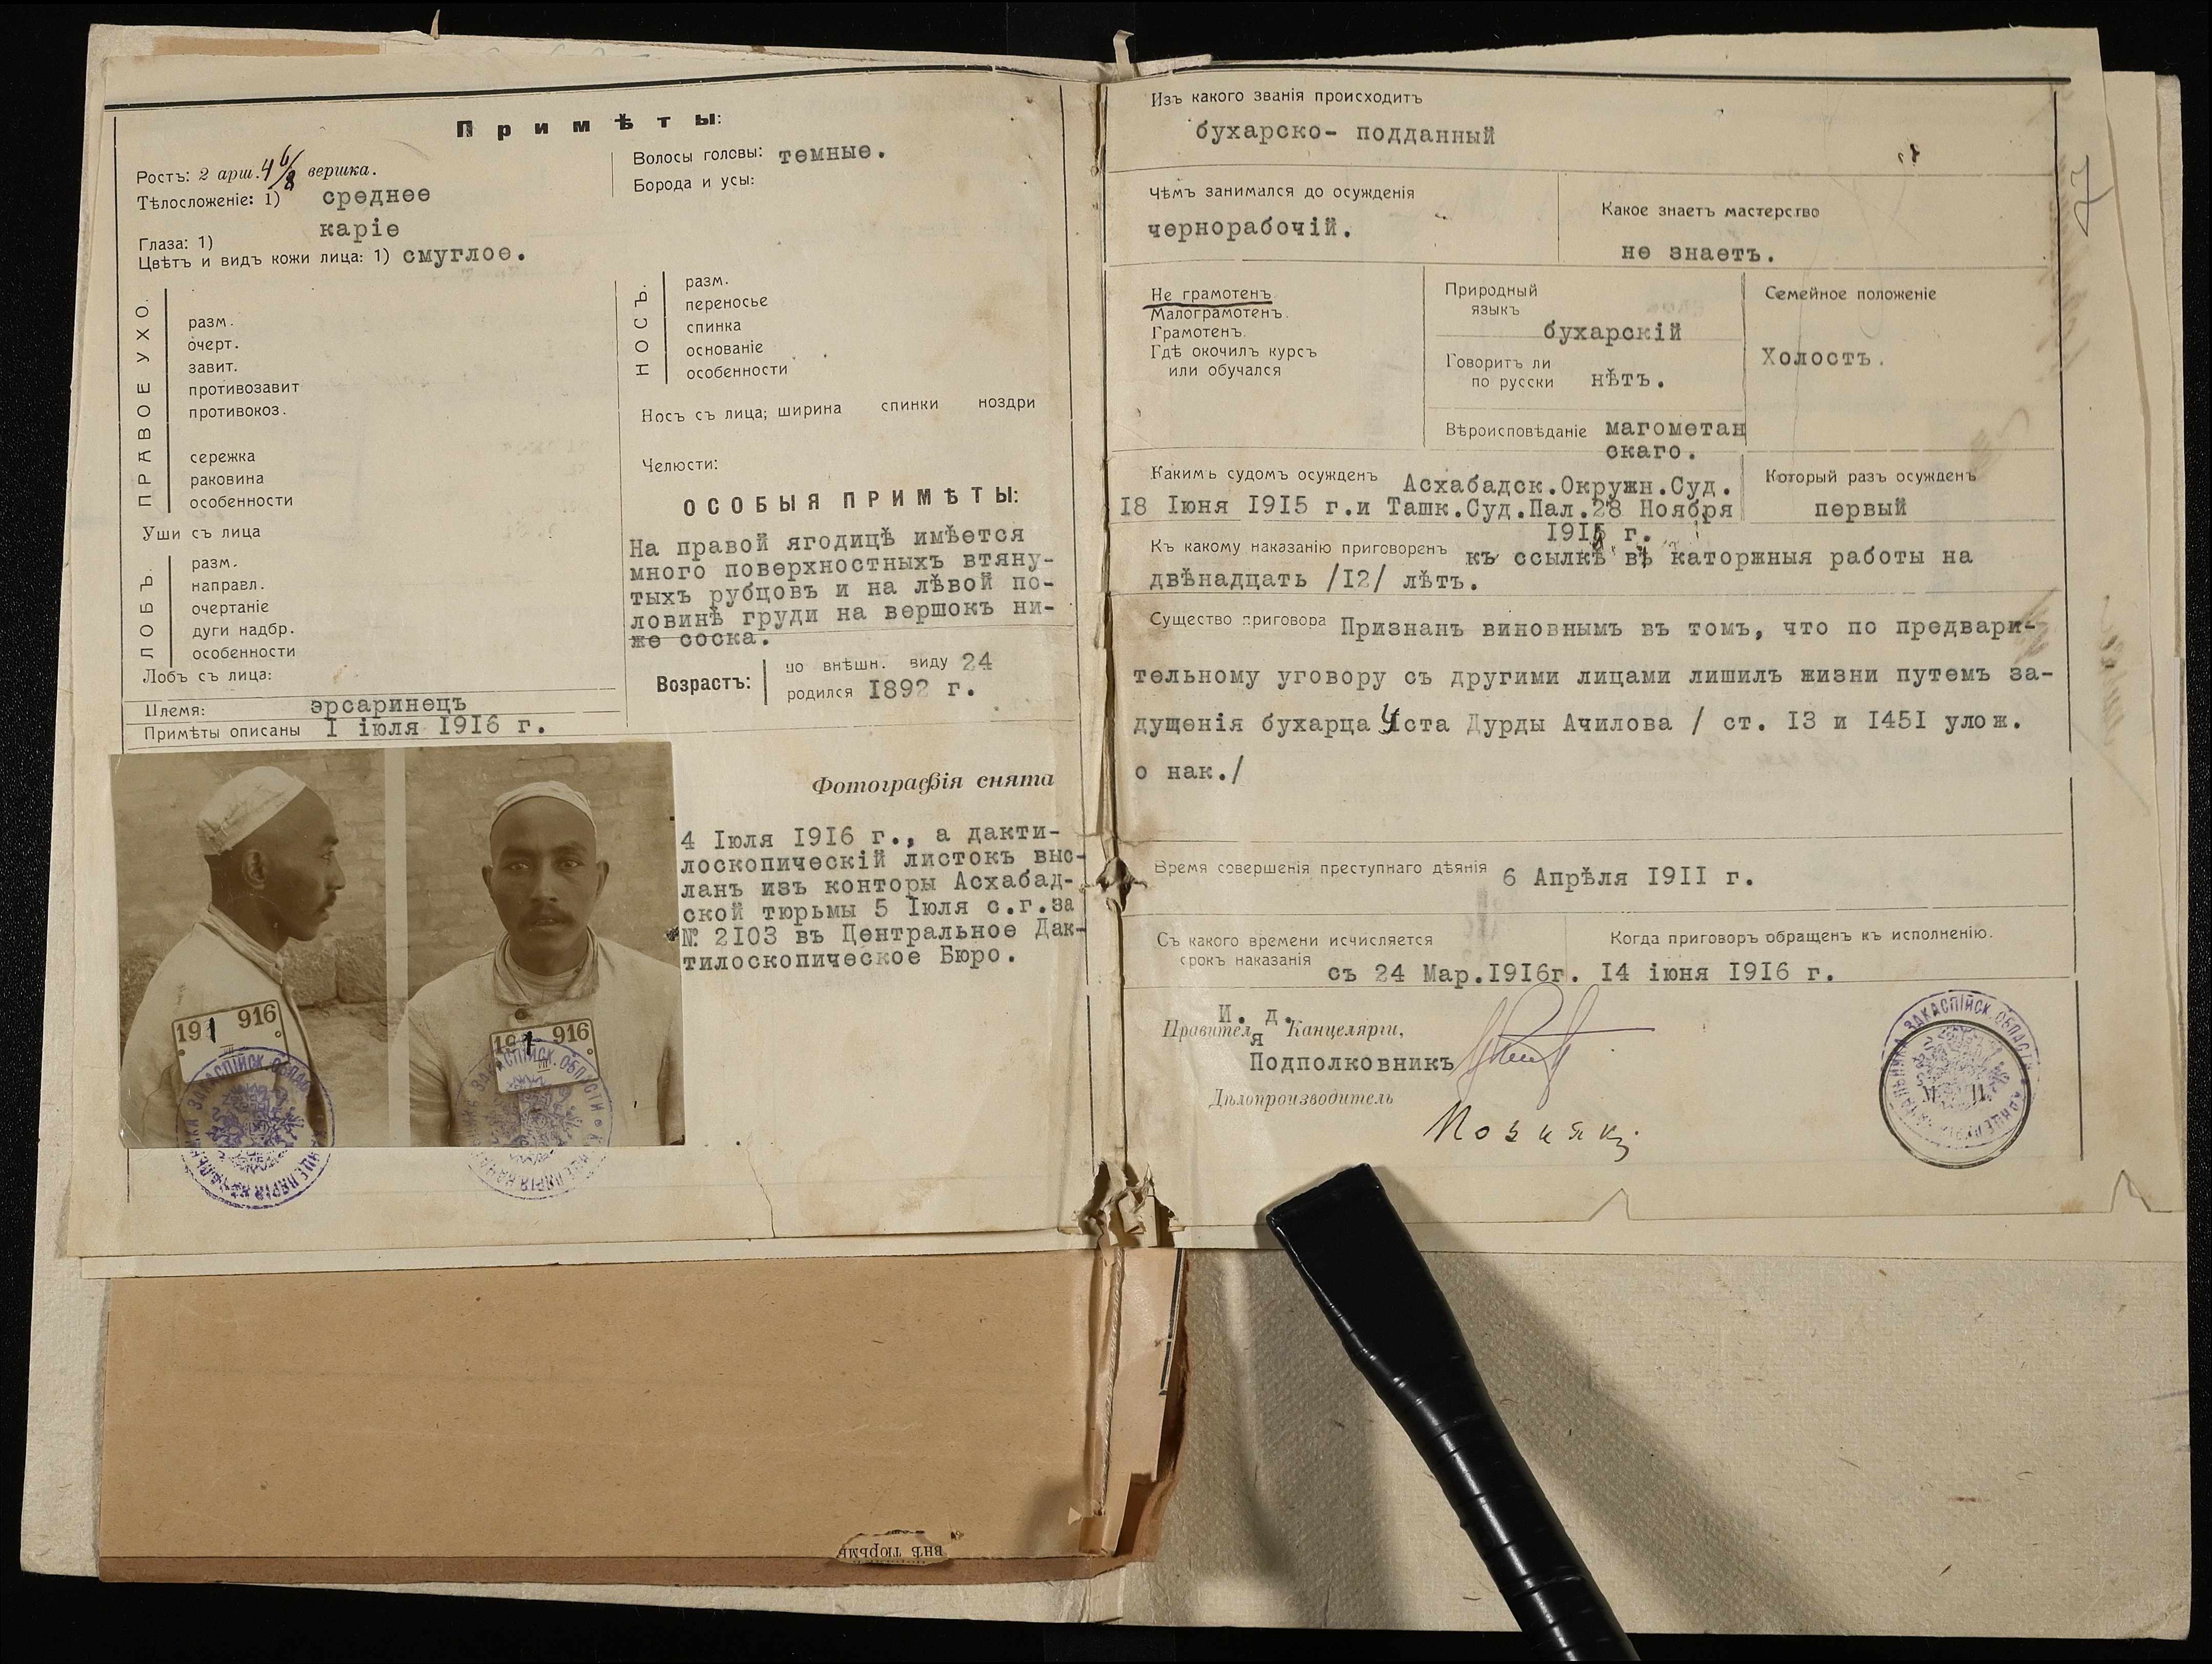 Примѣты:
Ростъ: 2 арш. 4 6/8 вершка.
Тѣлосложеніе: 1) среднее
Глаза: 1) каріе
Цвѣтъ и видъ кожи лица: 1) смуглое.
Волосы головы: темные.
Борода и усы:
ПРАВОЕ УХО.
разм.
очерт.
завит.
противозавит
противокоз.
сережка
раковина
особенности
Уши съ лица
ЛОБЪ.
разм.
направл.
очертаніе
дуги надбр.
особенности
Лобъ съ лица:
Племя: эрсаринецъ
Примѣты описаны 1 іюля 1916 г.
НОСЪ.
разм.
переносье
спинка
основаніе
особенности
Носъ съ лица; ширина спинки ноздри
Челюсти:
ОСОБЫЯ ПРИМѢТЫ:
На правой ягодицѣ имѣется
много поверхностныхъ втяну-
тыхъ рубцовъ и на лѣвой по-
ловинѣ груди на вершокъ ни-
же соска.
Возрастъ:
по внѣшн. виду 24
родился 1892 г.
Фотографія снята
4 Іюля 1916 г., а дакти-
лоскопическій листокъ выс-
ланъ изъ конторы Асхабад-
ской тюрьмы 5 Іюля с.г.за
№ 2103 въ Центральное Дак-
тилоскопическое Бюро.
191 916
VII
916
VII
ЗАКАСПІЙСК. ОБЛАСТИ
ЗАКАСПІЙСК. ОБЛАСТИ
Изъ какого званія происходитъ
бухарско- подданный
Чѣмъ занимался до осужденія
чернорабочій.
Какое знаетъ мастерство
не знаетъ.
Не грамотенъ
Малограмотенъ.
Грамотенъ.
Гдѣ окочилъ курсъ
или обучался
Природный
языкъ
бухарскій
Говоритъ ли
по русски нѣтъ.
Вѣроисповѣданіе магометан
скаго.
Семейное положеніе
Холостъ.
Какимъ судомъ осужденъ Асхабадск.Окружн.Суд.
18 Іюня 1915 г.и Ташк.Суд.Пал.28 Ноября
1915 г.
Который разъ осужденъ
первый
Къ какому наказанію приговоренъ къ ссылкѣ въ каторжныя работы на
двѣнадцать /12/ лѣтъ.
Существо приговора Признанъ виновнымъ въ томъ, что по предвари-
тельному уговору съ другими лицами лишилъ жизни путемъ за-
душенія бухарца Уста Дурды Ачилова / ст. 13 и 1451 улож.
о нак./
Время совершенія преступнаго дѣянія 6 Апрѣля 1911 г.
Съ какого времени исчисляется
срокъ наказанія съ 24 Мар.1916г.
Когда приговоръ обращенъ къ исполненію.
14 іюня 1916 г.
И. д.
Правителя Канцеляріи,
Подполковникъ
Дѣлопроизводитель
Позняк
ЗАКАСПІЙСК. ОБЛАСТИ
М П
внъ тюрьмы